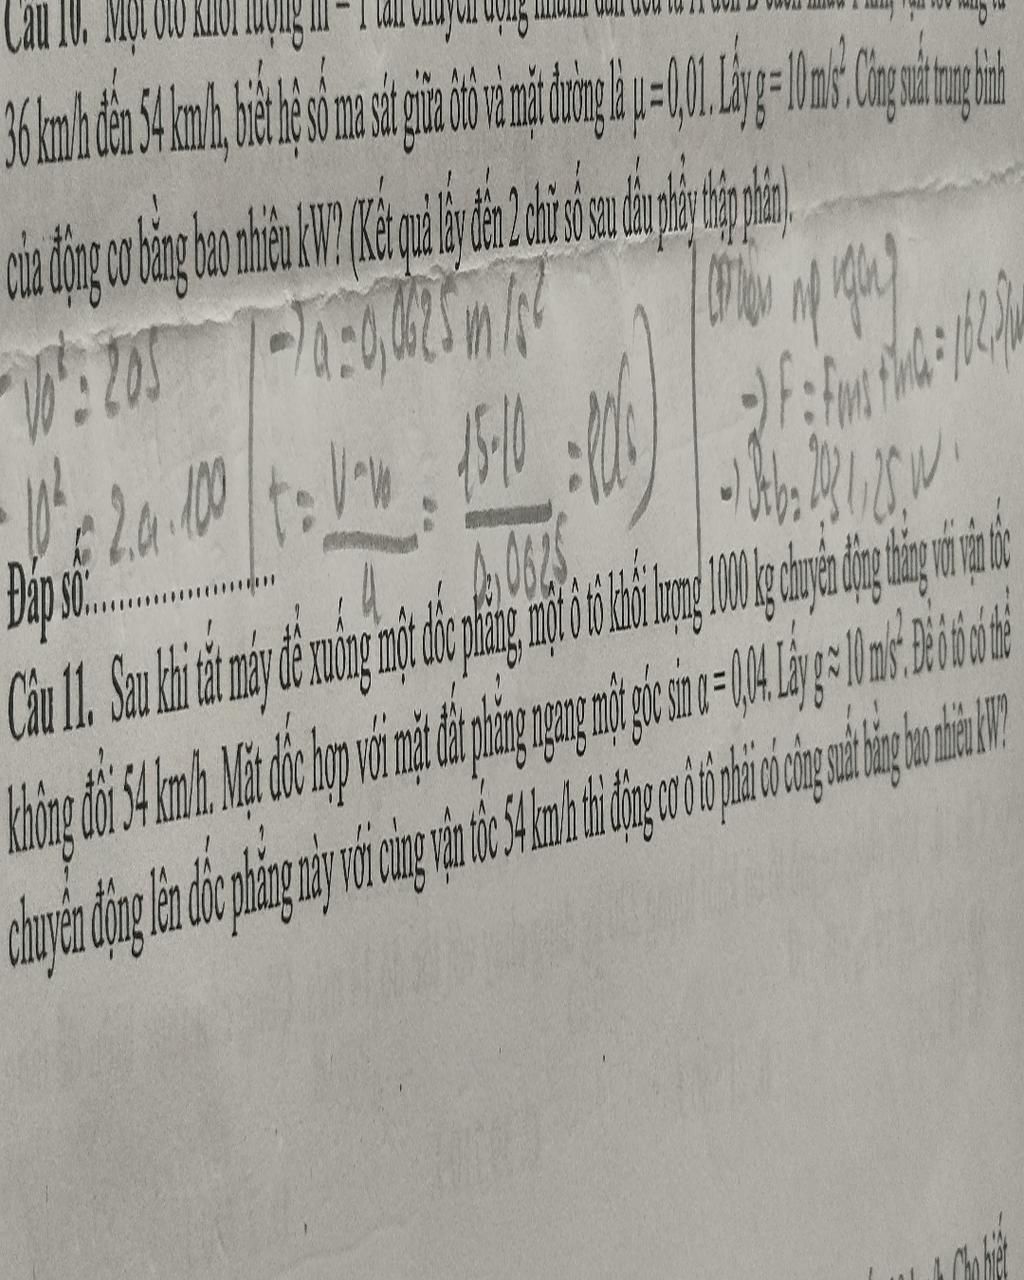 Câu 10. Một ôtô khối lượng m = 1 tấn chuyển động nhanh dần đều từ A đến B cách nhau 1 km, vận tốc tăng từ
36 km/h đến 54 km/h, biết hệ số ma sát giữa ôtô và mặt đường là μ = 0,01. Lấy g = 10 m/s². Công suất trung bình
của động cơ bằng bao nhiêu kW? (Kết quả lấy đến 2 chữ số sau dấu phẩy thập phân).
- v₀² = 2as
10² = 2.a.100
→ a = 0,0625 m/s²
t = (v - v₀)/a = (15-10)/0,0625 = 80(s)
→ F = Fms + ma = 162,5
→ Ptb = 2031,25 W.
Đáp số:........................
Câu 11. Sau khi tắt máy để xuống một dốc phẳng, một ô tô khối lượng 1000 kg chuyển động thẳng với vận tốc
không đổi 54 km/h. Mặt dốc hợp với mặt đất phẳng ngang một góc sin α = 0,04. Lấy g ≈ 10 m/s². Để ô tô có thể
chuyển động lên dốc phẳng này với cùng vận tốc 54 km/h thì động cơ ô tô phải có công suất bằng bao nhiêu kW?
Cho biết